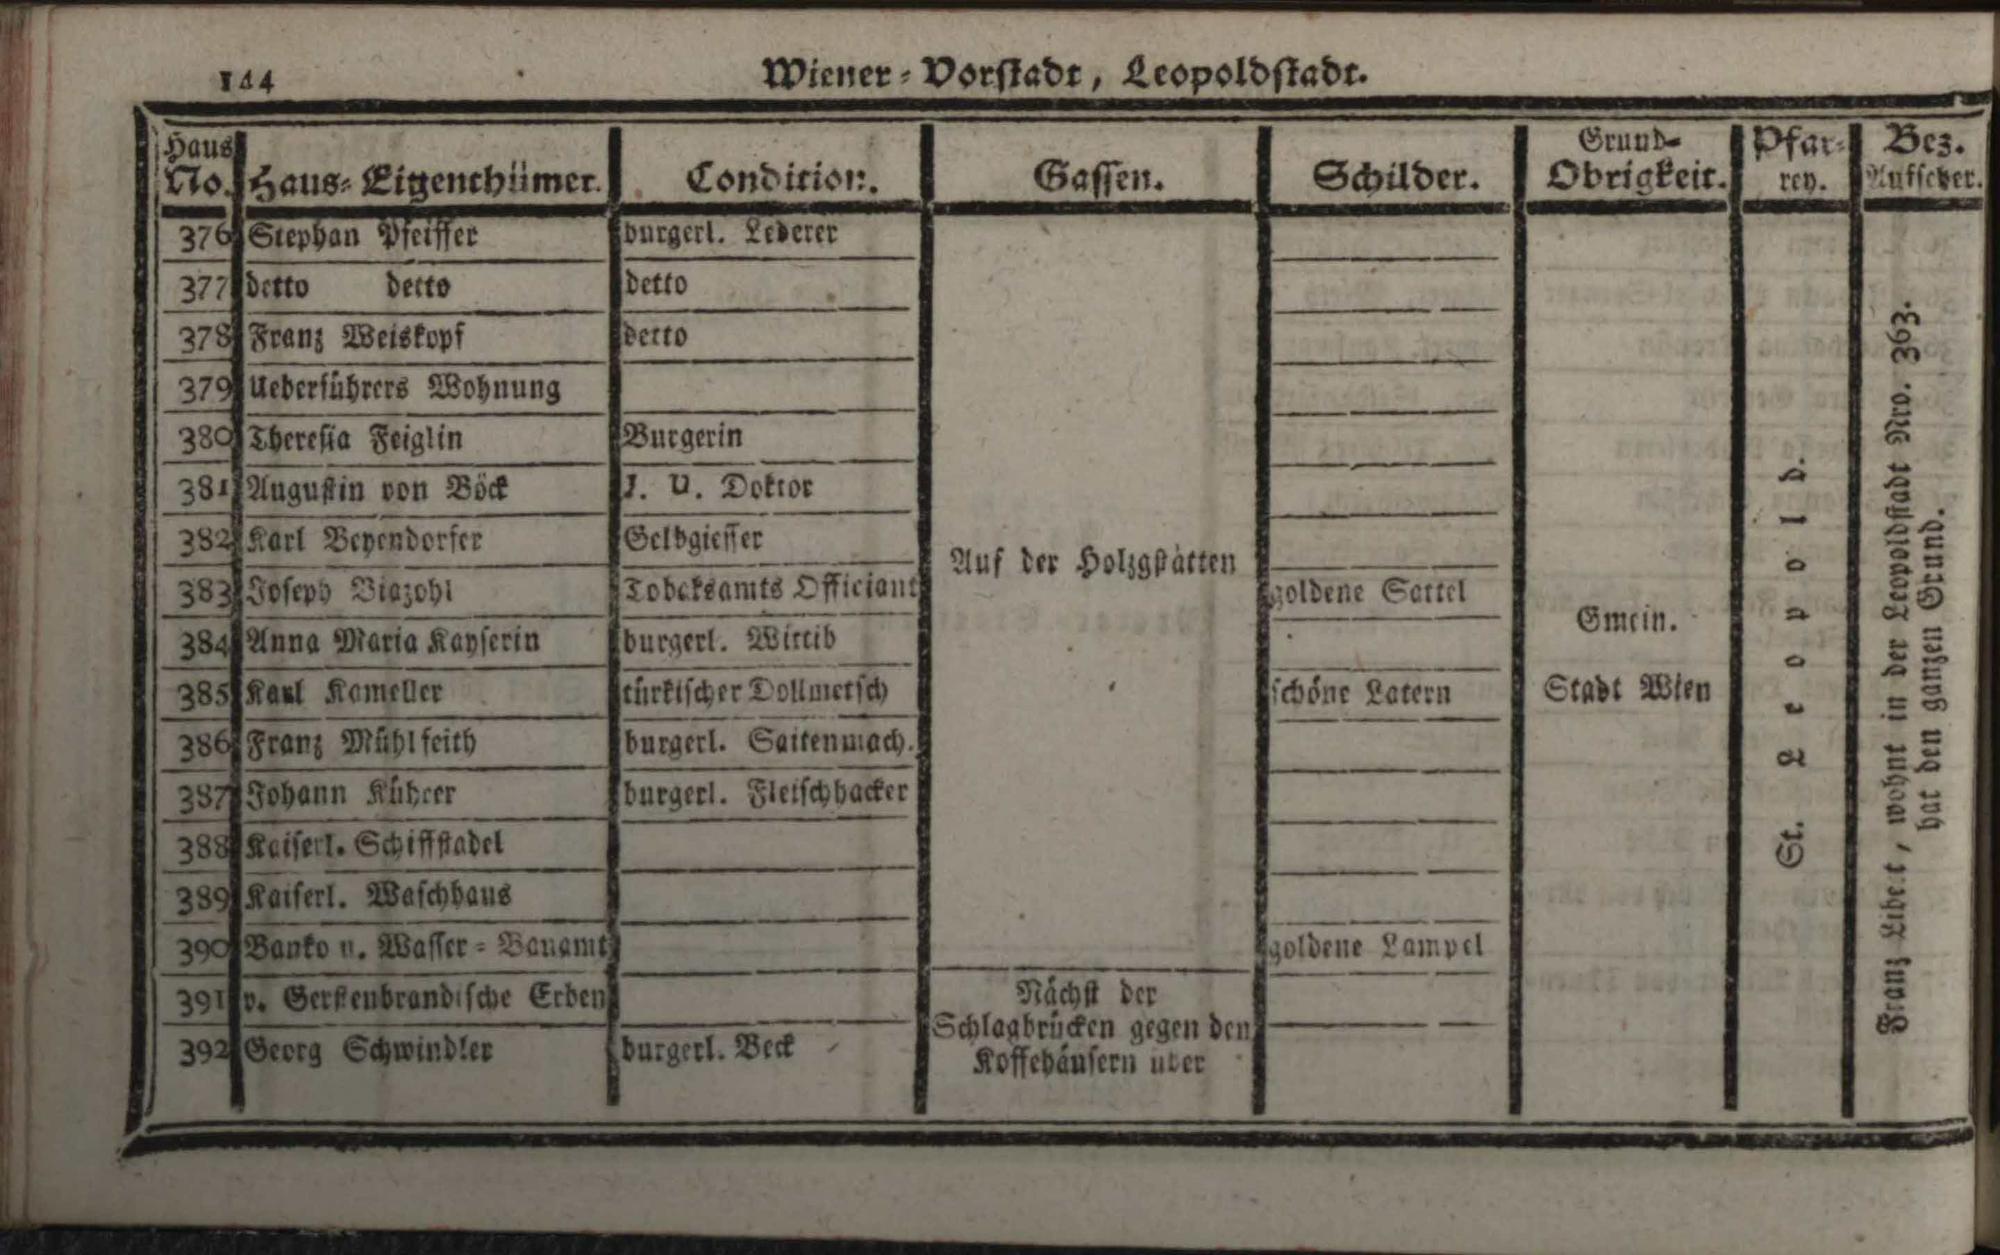 144
Wiener-Vorstadt, Leopoldstadt.
Haus No. Haus-Eigenthümer. Condition. Gassen. Schilder. Grund-Obrigkeit. Pfar-rey. Bez. Aufseher.
376 Stephan Pfeiffer burgerl. Lederer
377 detto detto detto
378 Franz Weiskopf detto
379 Ueberführers Wohnung
380 Theresia Feiglin Burgerin
381 Augustin von Böck J. U. Doktor
382 Karl Beyendorfer Gelbgiesser
383 Joseph Biazohl Tobaksamts Officiant goldene Sattel
384 Anna Maria Kayserin burgerl. Wittib
385 Karl Kameller türkischer Dollmetsch schöne Latern
386 Franz Mühlfeith burgerl. Saitenmach.
387 Johann Kührer burgerl. Fleischhacker
388 Kaiserl. Schiffstadel
389 Kaiserl. Waschhaus
390 Banko u. Wasser-Bauamt goldene Lampel
391 v. Gerstenbrandische Erben
392 Georg Schwindler burgerl. Beck
Auf der Holzgstätten
Nächst der
Schlagbrücken gegen den
Koffehäusern über
Gmein.
Stadt Wien
St. Leopold.
Franz Libert, wohnt in der Leopoldstadt Nro. 363.
hat den ganzen Grund.